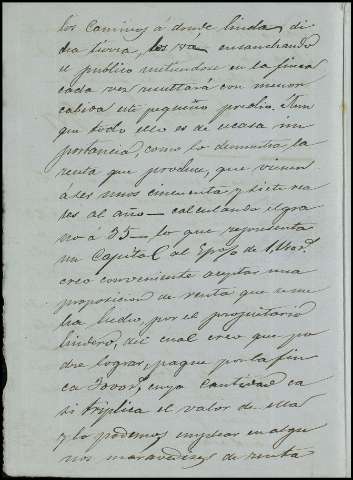 los Caminos á donde linda, di-
cha tierra, los vá ensanchando
el publico metiendose en la finca
cada vez resultará con menor
cabida este pequeño predio. Aun
que todo ello es de escasa im
portancia, como lo demuestra, la
renta que produce, que vienen
á ser unos cincuenta y siete rea
les al año — calculando el gra
no á 35 — lo que representa
un Capital al 4 p% de 1,400 rs
creo conveniente aceptar una
proposicion de venta que se me
ha hecho, por el propietario
lindero, del cual creo que po
dre lograr, pague por la fin
ca rs, cuya Cantidad ca
si triplica el valor de ella
y lo podemos emplear en algu
nos maravedises de renta